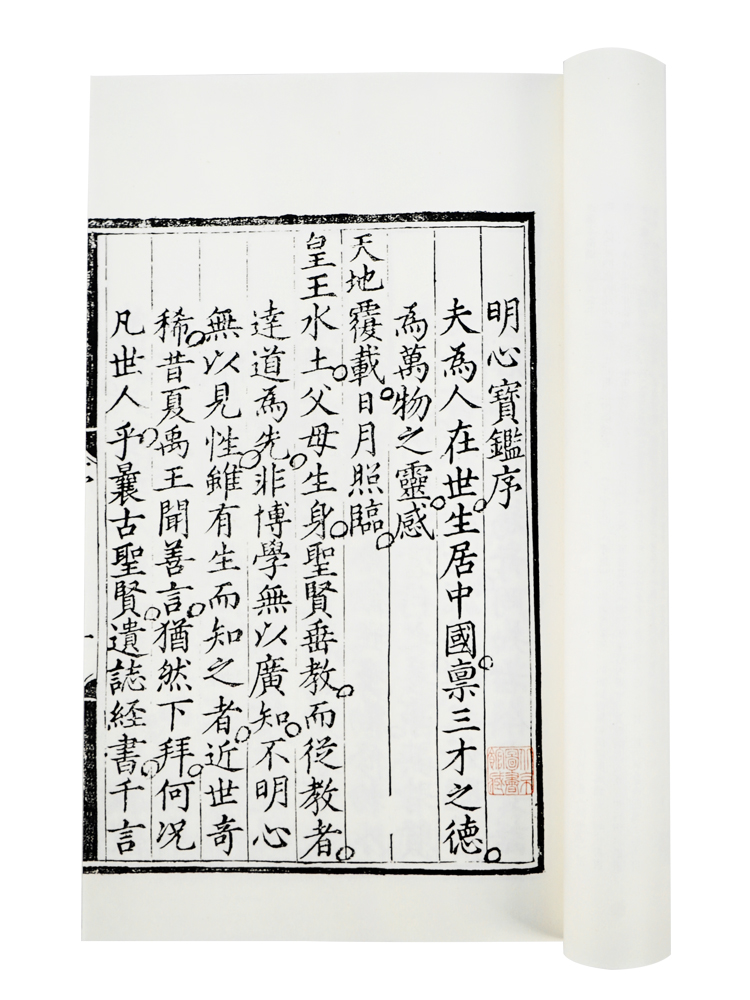 明心寶鑑序
夫為人在世生居中國禀三才之德
為萬物之靈感
天地覆載日月照臨
皇王水土父母生身聖賢垂教而從教者
達道為先非博學無以廣知不明心
無以見性雖有生而知之者近世奇
稀昔夏禹王聞善言猶然下拜何况
凡世人乎曩古聖賢遺誌經書千言